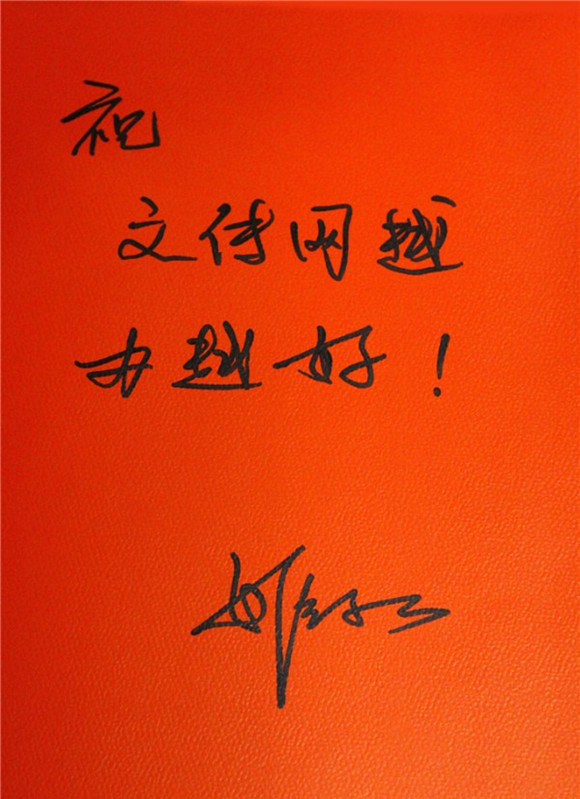 祝
文传网越
办越好！